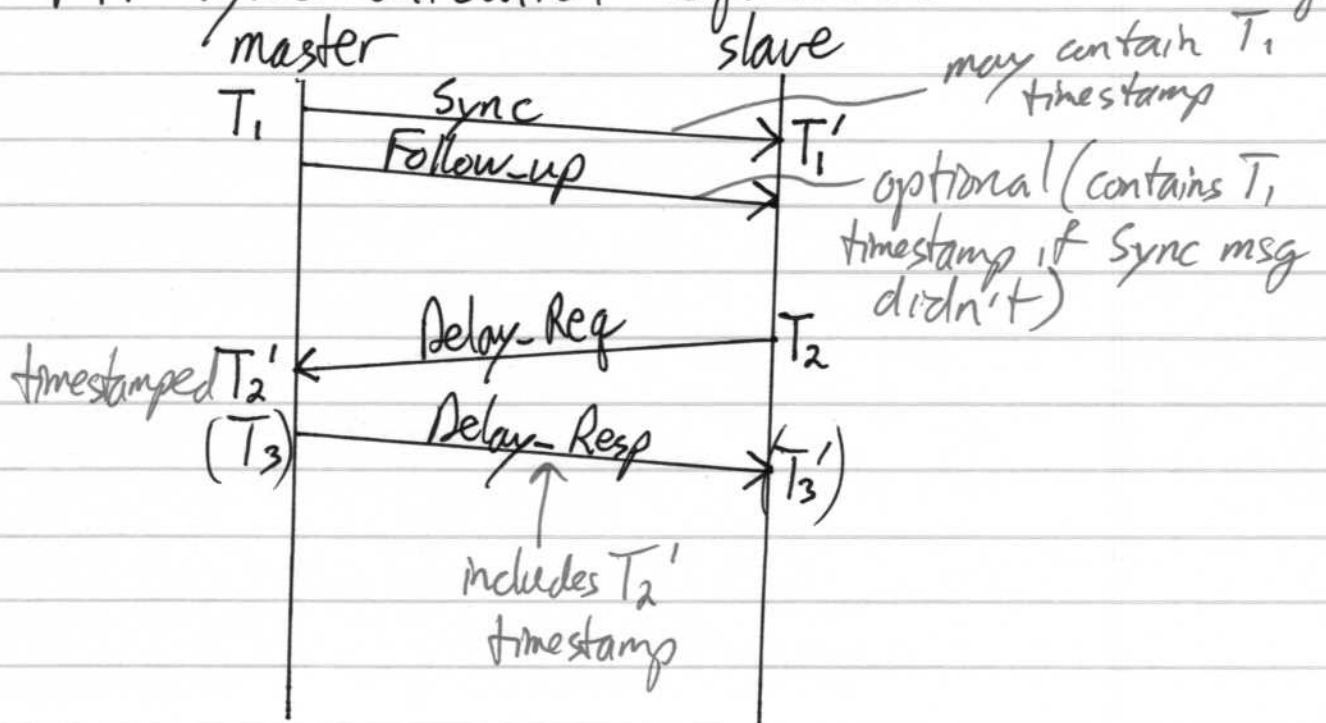 master slave
may contain T₁
timestamp
T₁ Sync T₁'
Follow_up
optional (contains T₁
timestamp if Sync msg
didn't)
Delay_Req T₂
timestamped T₂'
(T₃) Delay_Resp (T₃')
includes T₂'
timestamp